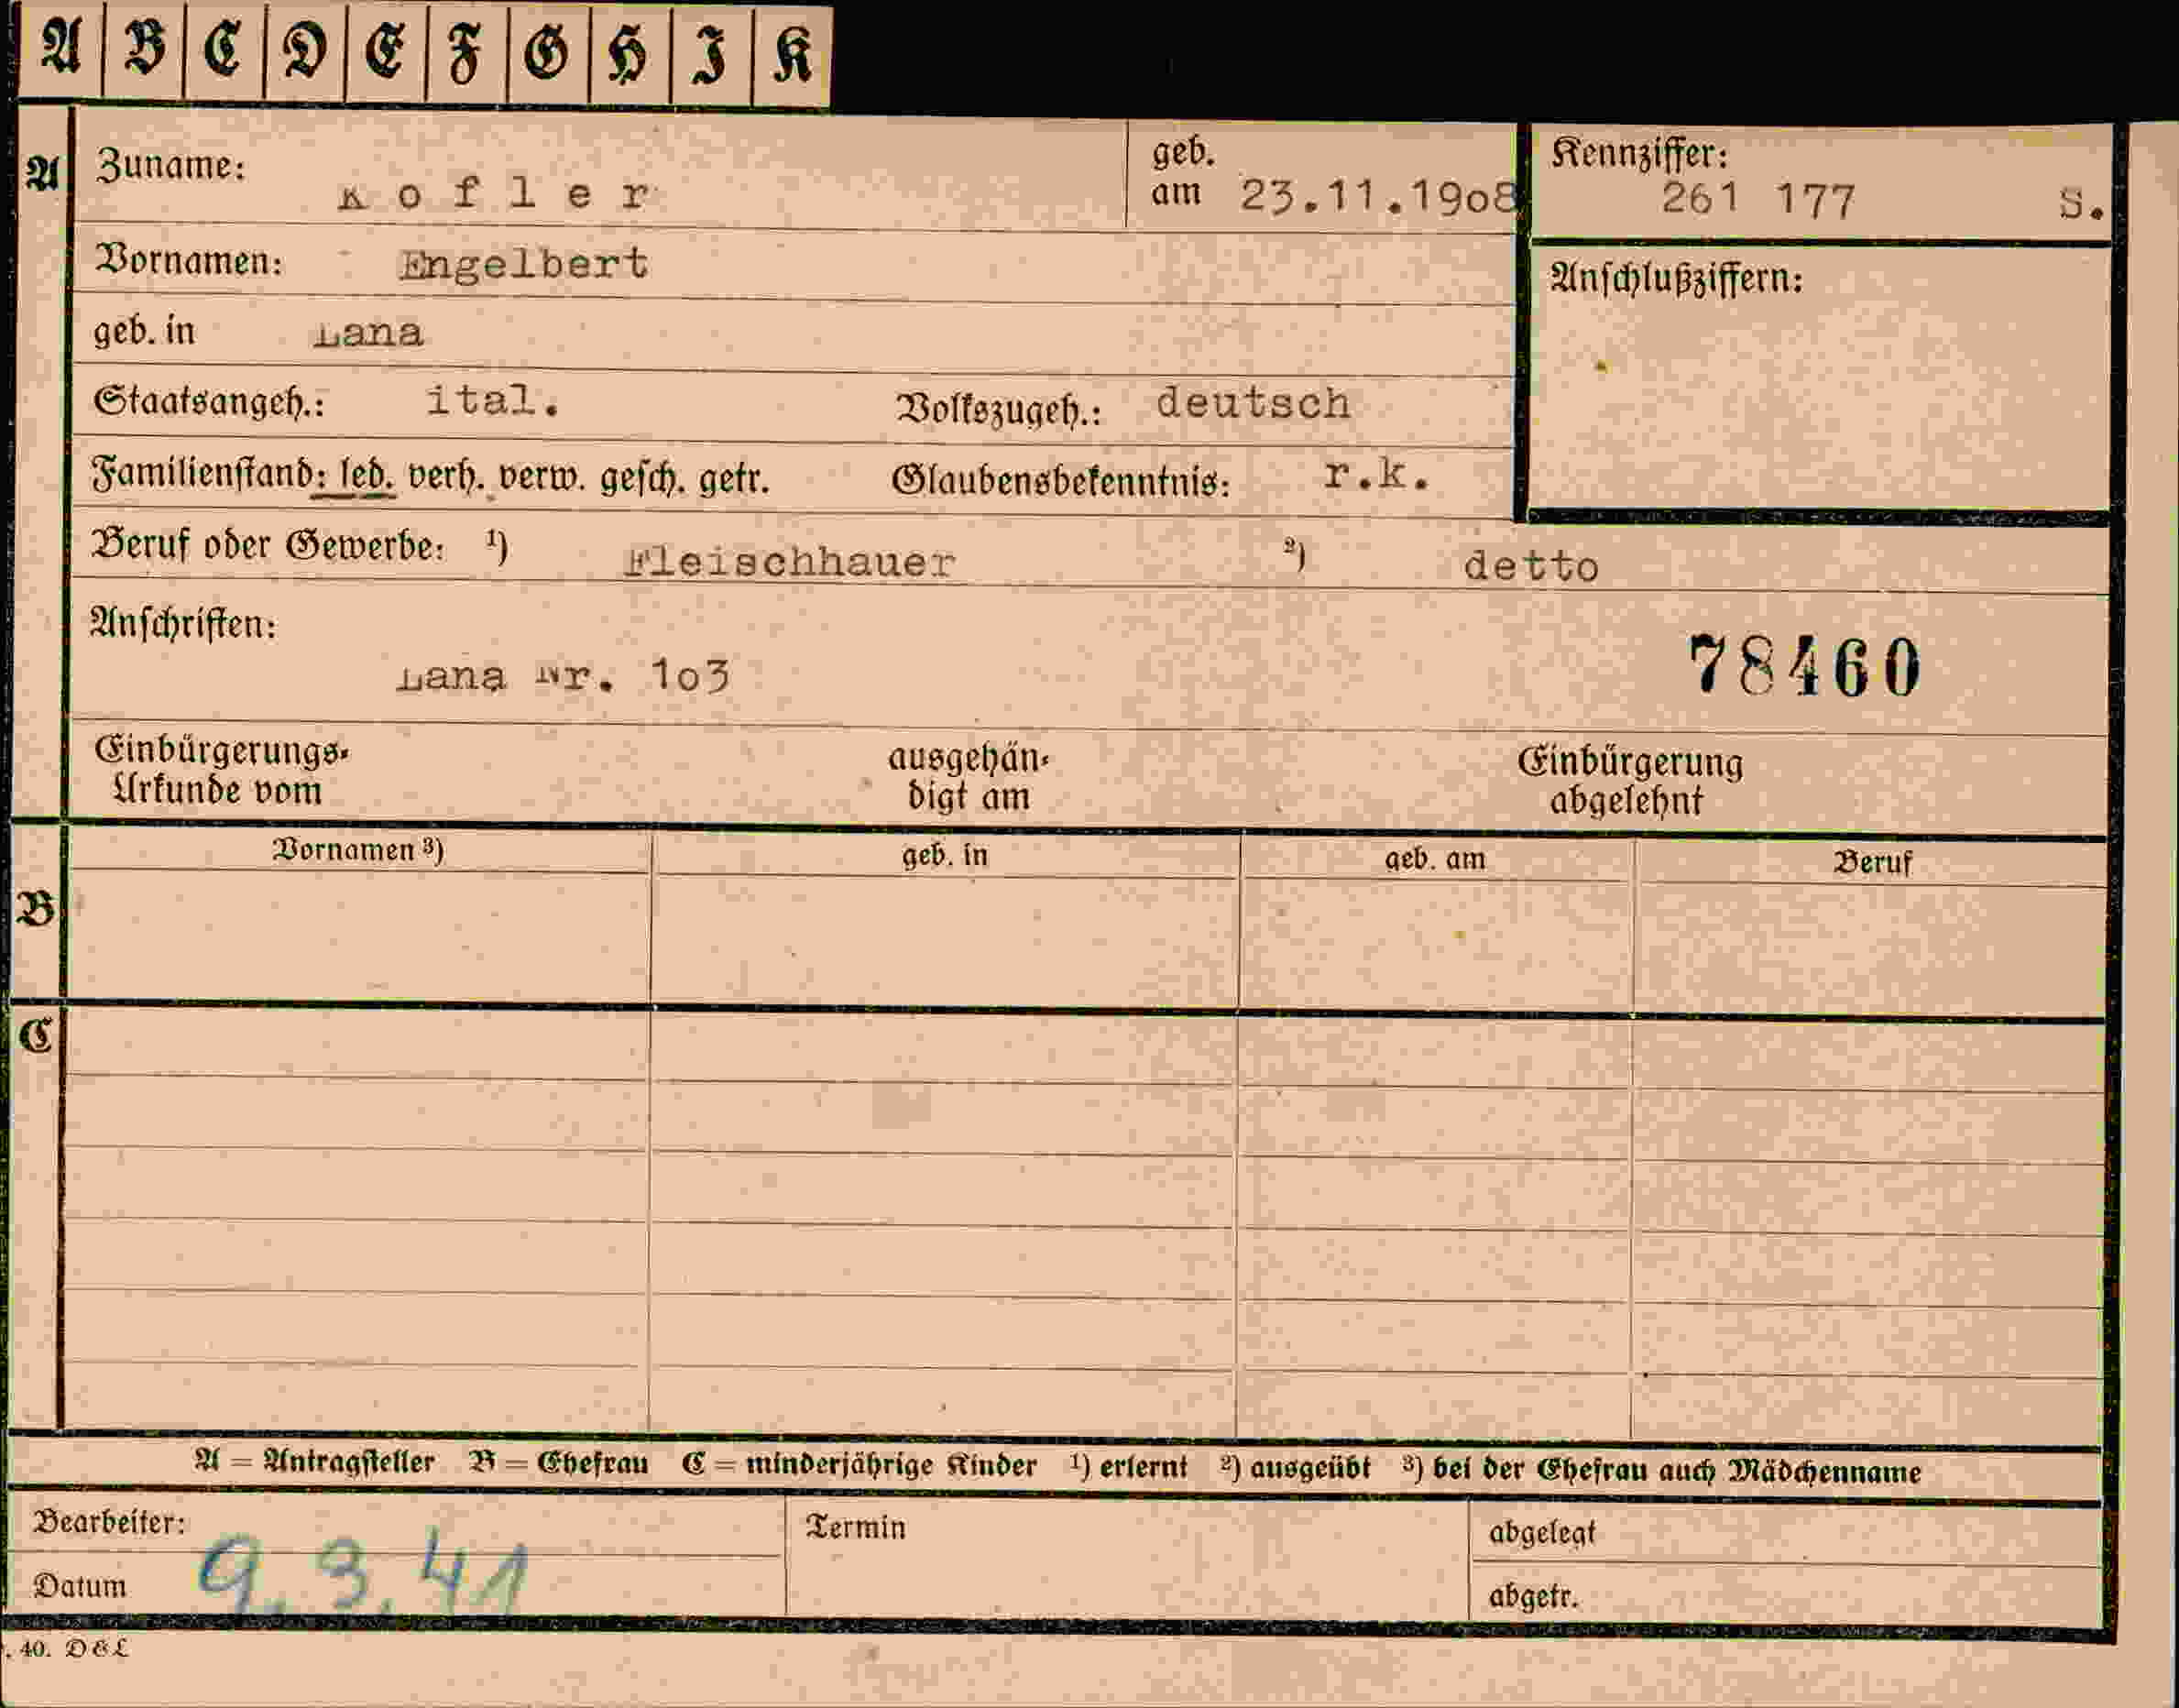 A B C D E F G H I K
A Zuname: Kofler geb. am 23.11.19o8 Kennziffer: 261 177 S.
Vornamen: Engelbert Anschlußziffern:
geb. in Lana
Staatsangeh.: ital. Volkszugeh.: deutsch
Familienstand: led. verh. verw. gesch. getr. Glaubensbekenntnis: r.k.
Beruf oder Gewerbe: ¹) Fleischhauer ²) detto
Anschriften:
Lana Nr. 1o3 78460
Einbürgerungs-
Urkunde vom
ausgehän-
digt am
Einbürgerung
abgelehnt
Vornamen ³) geb. in geb. am Beruf
B
C
A = Antragsteller B = Ehefrau C = minderjährige Kinder ¹) erlernt ²) ausgeübt ³) bei der Ehefrau auch Mädchenname
Bearbeiter: Termin abgelegt
Datum 9.3.41 abgetr.
. 40. D & L